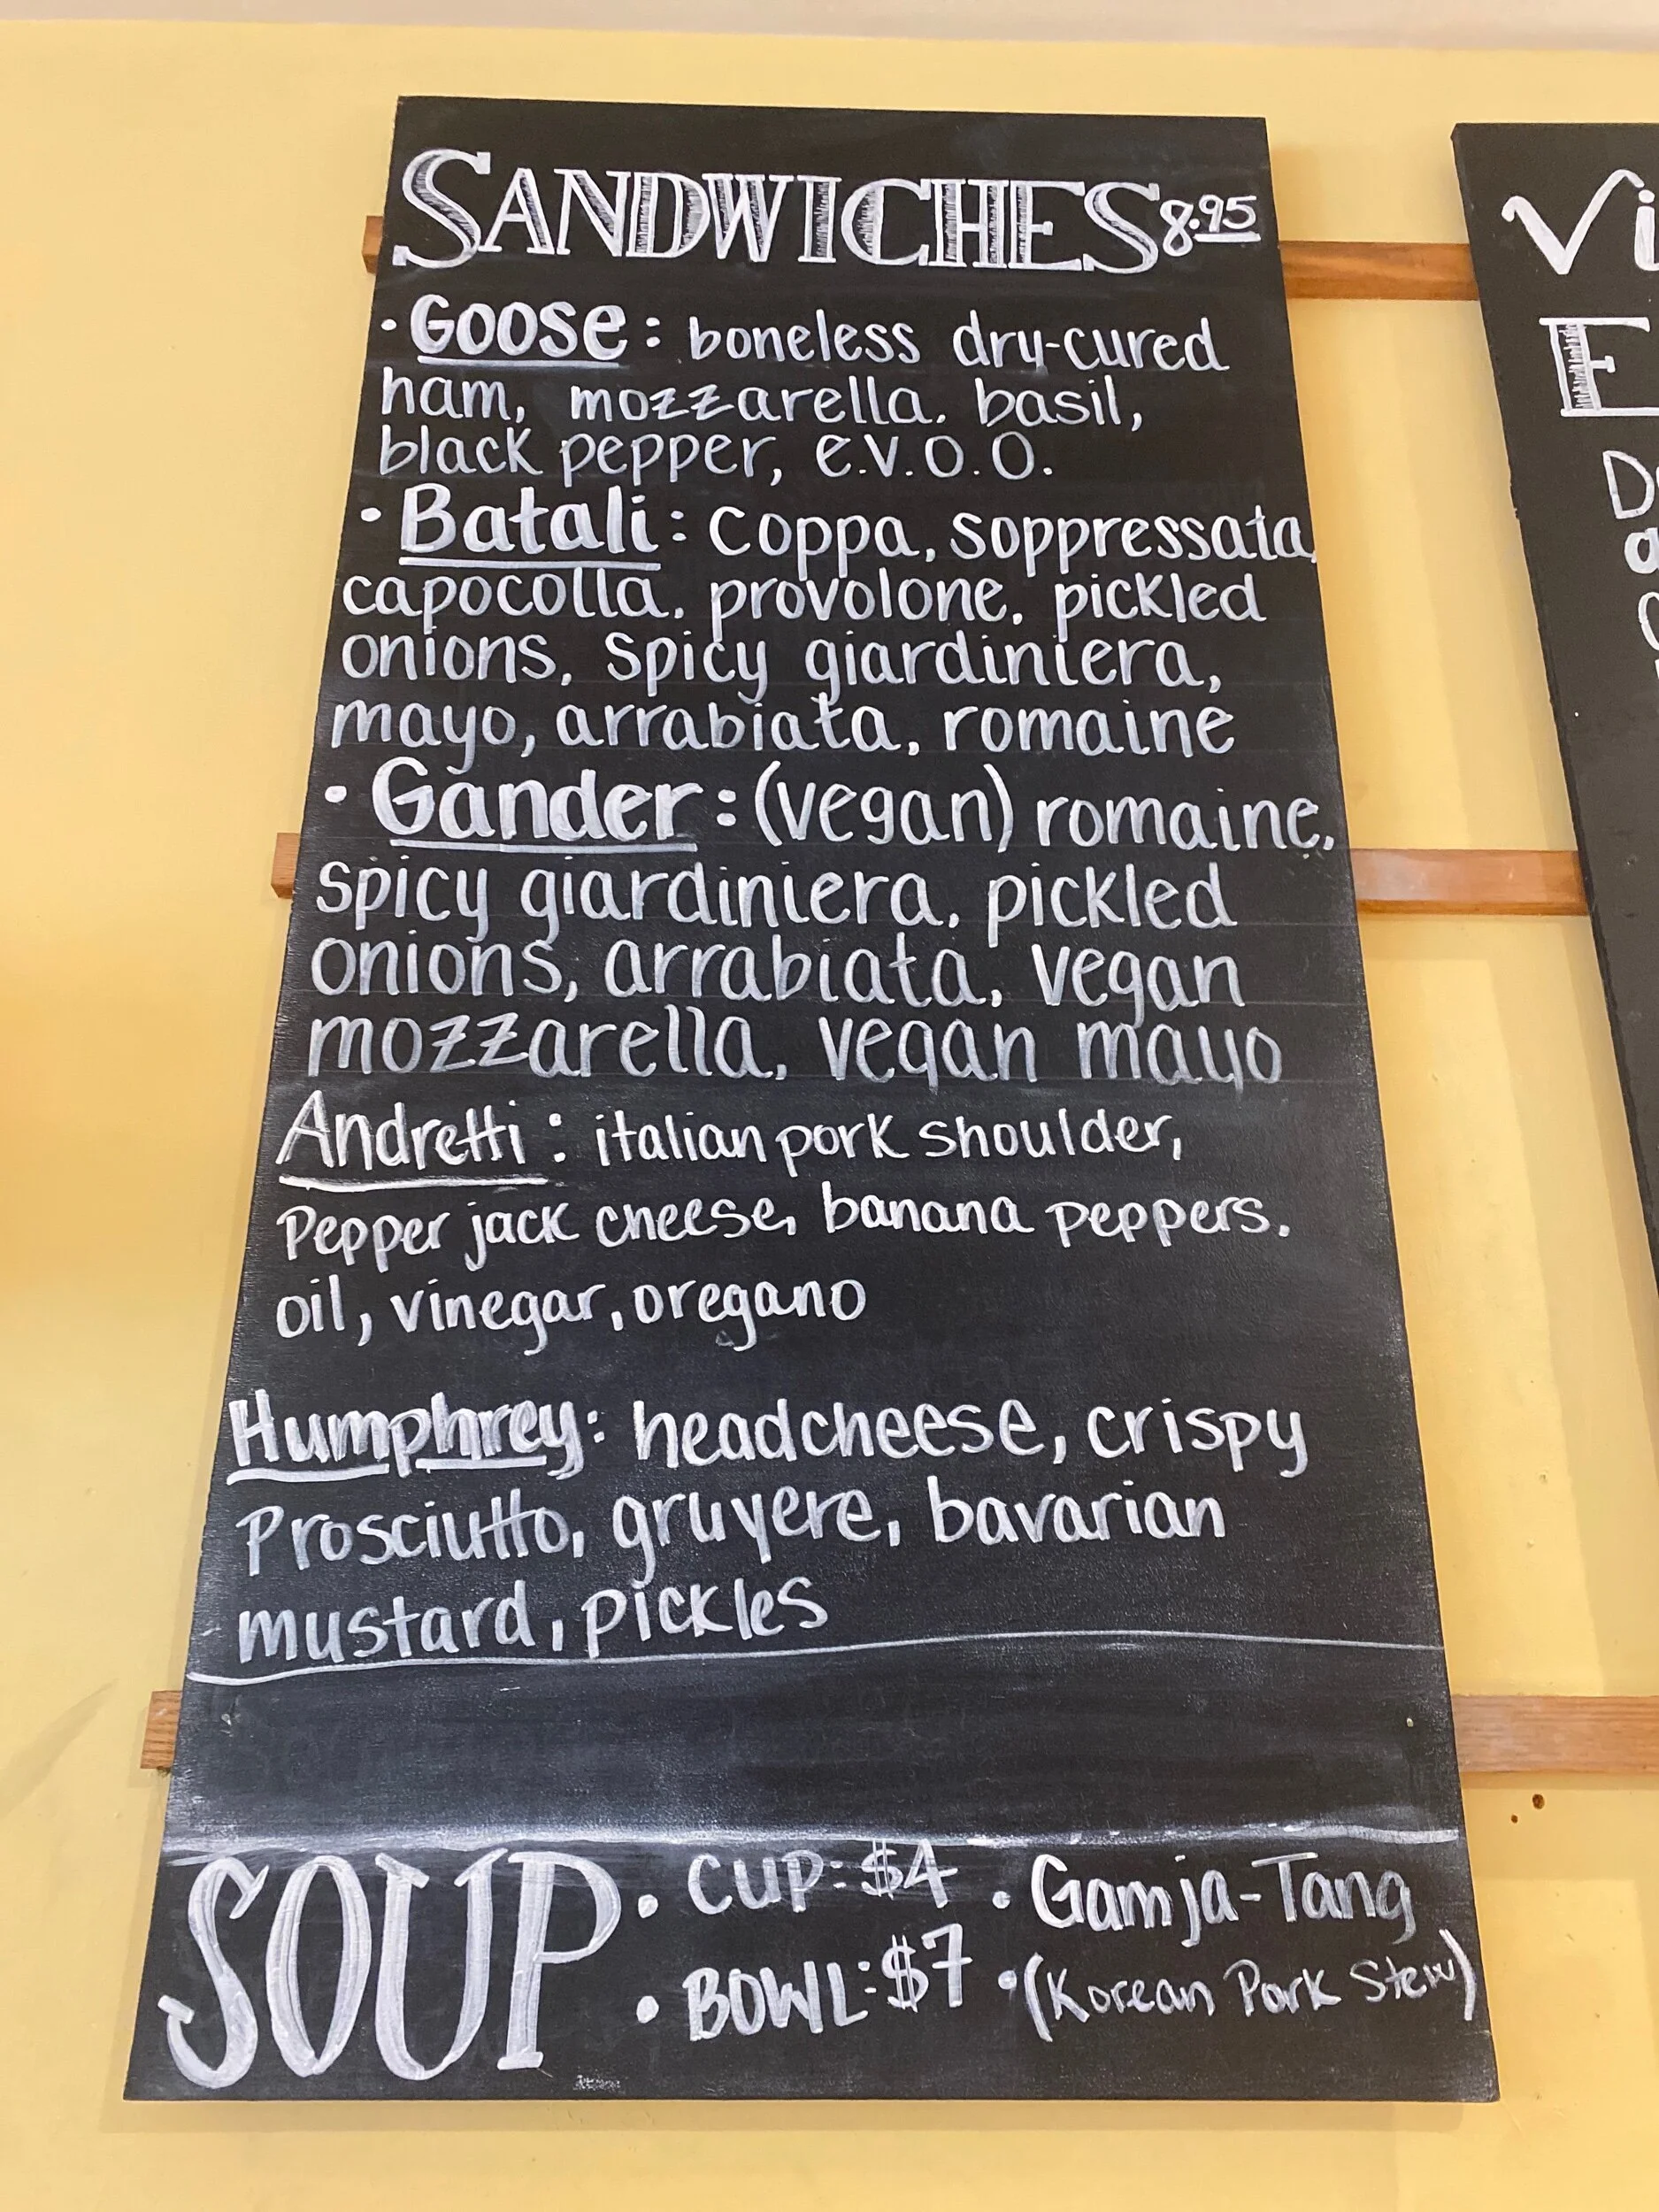 SANDWICHES 8.95
· Goose: boneless dry-cured
ham, mozzarella, basil,
black pepper, e.v.o.o.
· Batali: coppa, soppressata,
capocolla, provolone, pickled
onions, spicy giardiniera,
mayo, arrabiata, romaine
· Gander: (vegan) romaine,
spicy giardiniera, pickled
onions, arrabiata, vegan
mozzarella, vegan mayo
Andretti: italian pork shoulder,
Pepper jack cheese, banana peppers,
oil, vinegar, oregano
Humphrey: headcheese, crispy
Prosciutto, gruyere, bavarian
mustard, pickles
SOUP
· CUP: $4 · Gamja-Tang
· BOWL: $7 · (Korean Pork Stew)